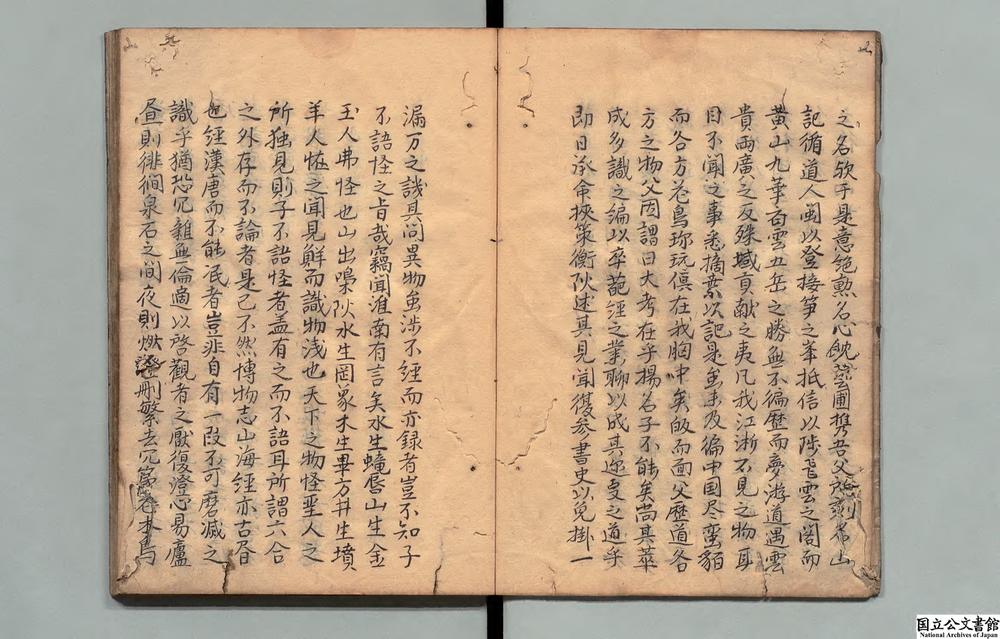 之名欤于是意絶勲名心䬸藝圃携吾父於剡希山
記循道人閩以登接筍之峯抵信以陟飛雲之閣而
黄山九華白雲九岳之勝無不徧歴而夢游道遇雲
貴两廣之友殊域貢献之夷凡我江淅不見之物耳
目不聞之事悉摘菓以記是虽未及徧中国尽蛮貊
而各方花鳥珎玩俱在我胸中矣皈而面父歴道各
方之物父因謂曰大考在乎揚名子不能矣尚其萃
成多識之編以卒葩經之業聊以成其迩叓之道乎
即日承命挾策衡陜述其見聞復参書史以免掛一
漏万之譏其间異物虽涉不經而亦録者豈不知子
不語怪之㫖哉竊闻淮南有言矣水生蠬蜃山生金
玉人弗怪也山出嘄陜水生罔象木生畢方井生墳
羊人恠之闻見鮮而識物浅也天下之物怪聖人之
所独見則子不語怪者盖有之而不語耳所謂六合
之外存而不論者是已不然博物志山海經亦古昏
也經漢唐而不能泯者豈非自有一段不可磨滅之
識乎猶恐冗雜無倫適以啓觀者之厭復澄心易廬
昼則徘徊泉石之间夜則燃燈删繁去冗第卷本鳥
国立公文書館
National Archives of Japan